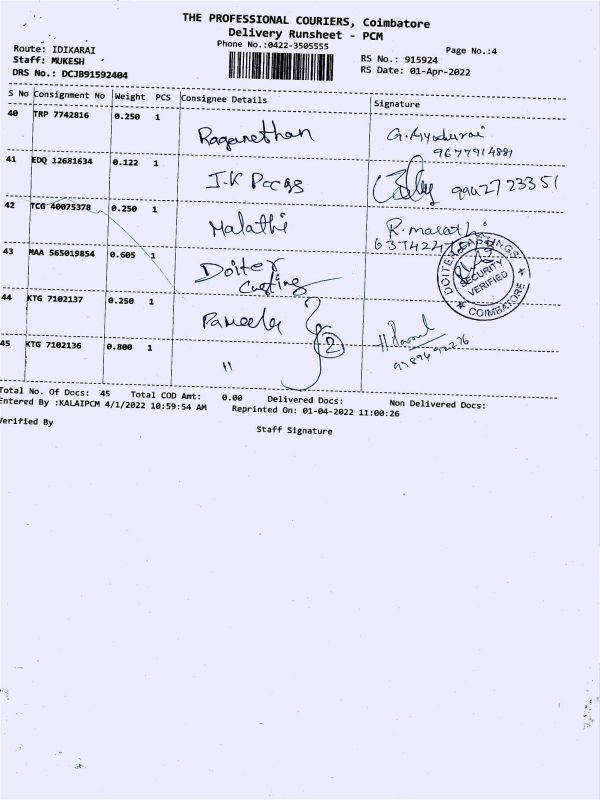 THE PROFESSIONAL COURIERS, Coimbatore
Delivery Runsheet - PCM
Phone No.:0422-3505555
Page No.:4
Route: IDIKARAI
Staff: MUKESH
DRS No.: DCJB91592404
RS No.: 915924
RS Date: 01-Apr-2022
S No Consignment No Weight PCS Consignee Details Signature
40 TRP 7742816 0.250 1
Raganethan
9677914881
41 EDQ 12681634 0.122 1
J.K Pocgs
9942723351
42 TCG 40075378 0.250 1
Malathi
R. malathi
43 MAA 565019854 0.605 1
Doiter
Casting
DOITER CASTINGS
SECURITY
VERIFIED
COIMBATORE
44 KTG 7102137 0.250 1
Pameela
2
45 KTG 7102136 0.800 1
"
Total No. Of Docs: 45 Total COD Amt: 0.00 Delivered Docs: Non Delivered Docs:
Entered By :KALAIPCM 4/1/2022 10:59:54 AM Reprinted On: 01-04-2022 11:00:26
Verified By
Staff Signature